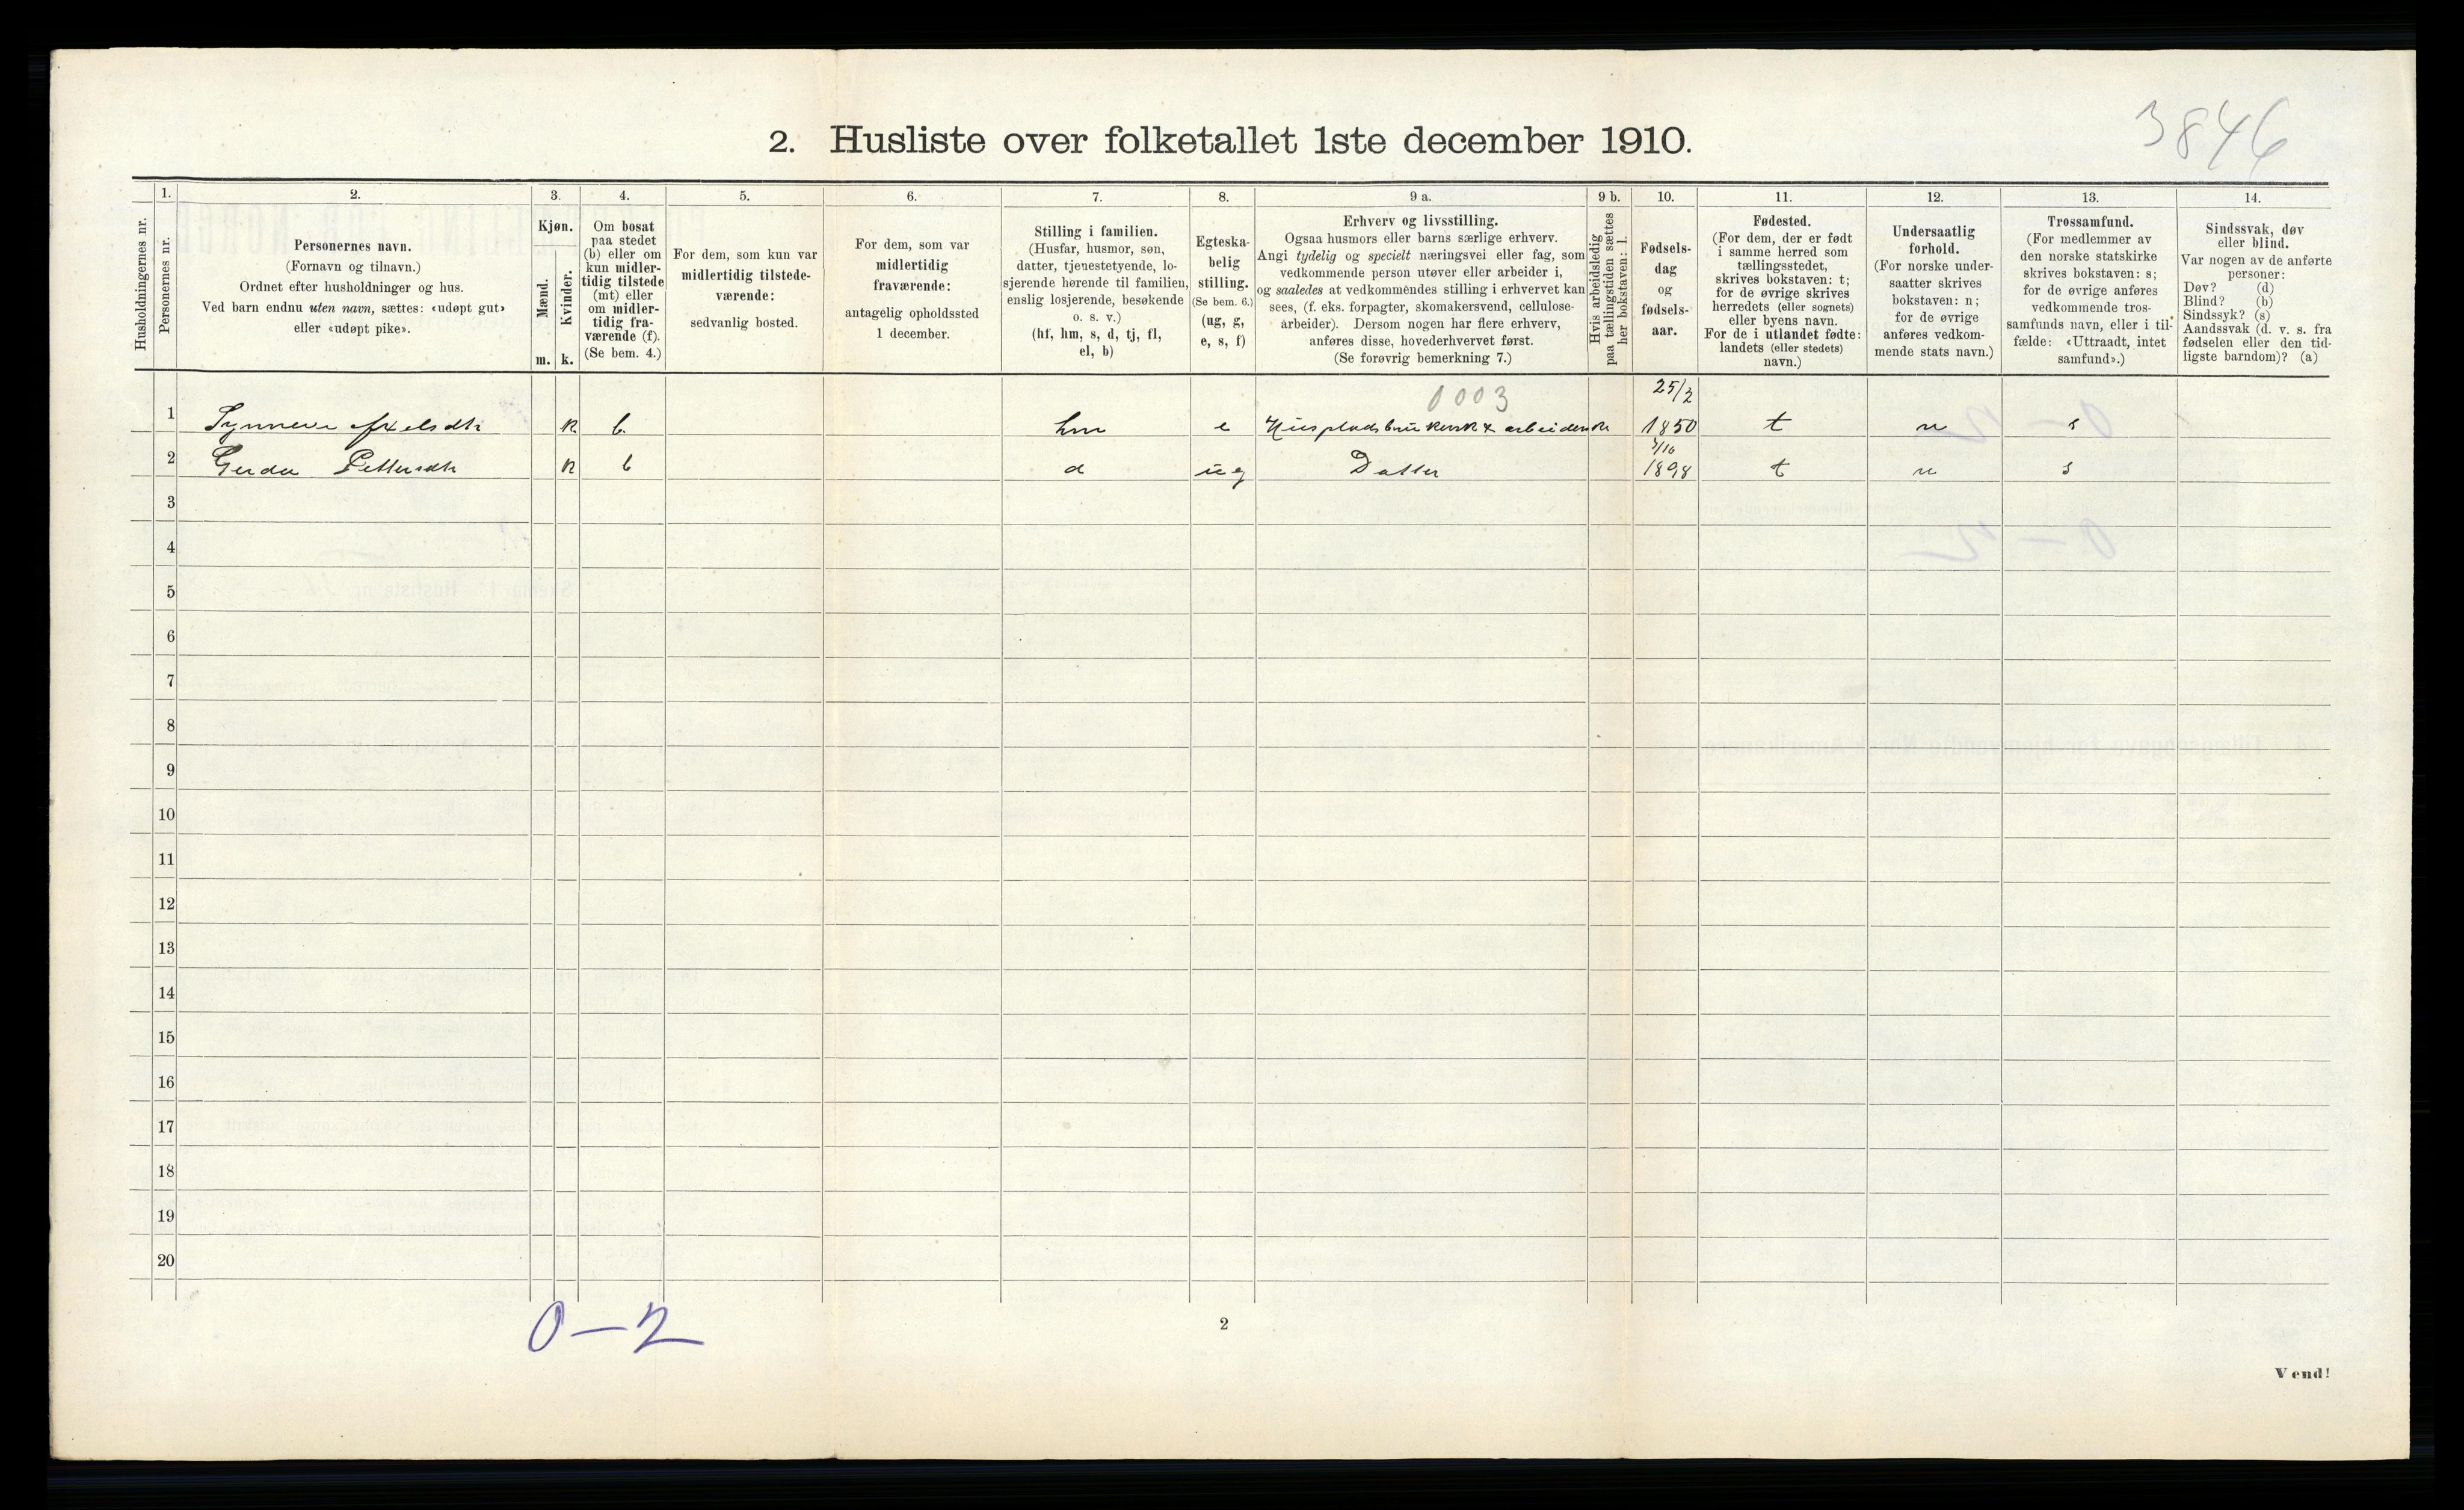 3846
2. Husliste over folketallet 1ste december 1910.
Husholdningernes nr.
1.
Personernes nr.
2.
Personernes navn.
(Fornavn og tilnavn.)
Ordnet efter husholdninger og hus.
Ved barn endnu uten navn, sættes: «udøpt gut»
eller «udøpt pike».
3.
Kjøn.
Mænd.
Kvinder.
m. k.
4.
Om bosat
paa stedet
(b) eller om
kun midler-
tidig tilstede
(mt) eller
om midler-
tidig fra-
værende (f).
(Se bem. 4.)
5.
For dem, som kun var
midlertidig tilstede-
værende:
sedvanlig bosted.
6.
For dem, som var
midlertidig
fraværende:
antagelig opholdssted
1 december.
7.
Stilling i familien.
(Husfar, husmor, søn,
datter, tjenestetyende, lo-
sjerende hørende til familien,
enslig losjerende, besøkende
o. s. v.)
(hf, hm, s, d, tj, fl,
el, b)
8.
Egteska-
belig
stilling.
(Se bem. 6.)
(ug, g,
e, s, f)
9 a.
Erhverv og livsstilling.
Ogsaa husmors eller barns særlige erhverv.
Angi tydelig og specielt næringsvei eller fag, som
vedkommende person utøver eller arbeider i,
og saaledes at vedkommendes stilling i erhvervet kan
sees, (f. eks. forpagter, skomakersvend, cellulose-
arbeider). Dersom nogen har flere erhverv,
anføres disse, hovederhvervet først.
(Se forøvrig bemerkning 7.)
9 b.
Hvis arbeidsledig
paa tællingstiden sættes
her bokstaven: l.
10.
Fødsels-
dag
og
fødsels-
aar.
11.
Fødested.
(For dem, der er født
i samme herred som
tællingsstedet,
skrives bokstaven: t;
for de øvrige skrives
herredets (eller sognets)
eller byens navn.
For de i utlandet fødte:
landets (eller stedets)
navn.)
12.
Undersaatlig
forhold.
(For norske under-
saatter skrives
bokstaven: n;
for de øvrige
anføres vedkom-
mende stats navn.)
13.
Trossamfund.
(For medlemmer av
den norske statskirke
skrives bokstaven: s;
for de øvrige anføres
vedkommende tros-
samfunds navn, eller i til-
fælde: «Uttraadt, intet
samfund».)
14.
Sindssvak, døv
eller blind.
Var nogen av de anførte
personer:
Døv? (d)
Blind? (b)
Sindssyk? (s)
Aandssvak (d. v. s. fra
fødselen eller den tid-
ligste barndom)? (a)
0003 25/2
1 k b. hm e 1850 t n s
2 Gerda Pettersdtr k b d ug Datter 1898 t n s
3
4
5
6
7
8
9
10
11
12
13
14
15
16
17
18
19
20
0 – 2
2
Vend!